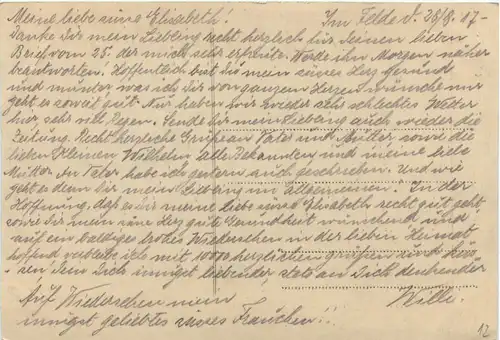 Meine liebe süsse Elisabeth! Im Felde d. 28/8. 17-
Danke Dir mein Liebling recht herzlich für Deinen lieben
Brief vom 25. der mich sehr erfreute. Werde ihn Morgen näher
beantworten. Hoffentlich bist du mein süsses Herz gesund
und munter, was ich dir von ganzem Herzen wünsche mir
geht es soweit gut. Nur haben wir wieder sehr schlechtes Wetter
hier sehr viel Regen. Sende dir mein Liebling auch wieder die
Zeitung. Recht herzliche Grüsse an Vater und Mutter sowie die
lieben Kleinen Wilhelm alle Bekannten und meine liebe
Mutter. An Vater habe ich gestern auch geschrieben. Und wie
geht es denn dir mein Liebling im allgemeinen. In der
Hoffnung, daß es dir meine liebe süsse Elisabeth recht gut geht
sowie dir mein süsses Herz gute Gesundheit wünschend und
auf ein baldiges frohes Wiedersehen in der lieben Heimat
hoffend verbleibe ich mit 10000 herzlichen Grüßen und Küs-
sen Dein Dich innigst liebender, stets an Dich denkender
Auf Wiedersehen mein Willi.
innigst geliebtes süsses Frauchen!!
12